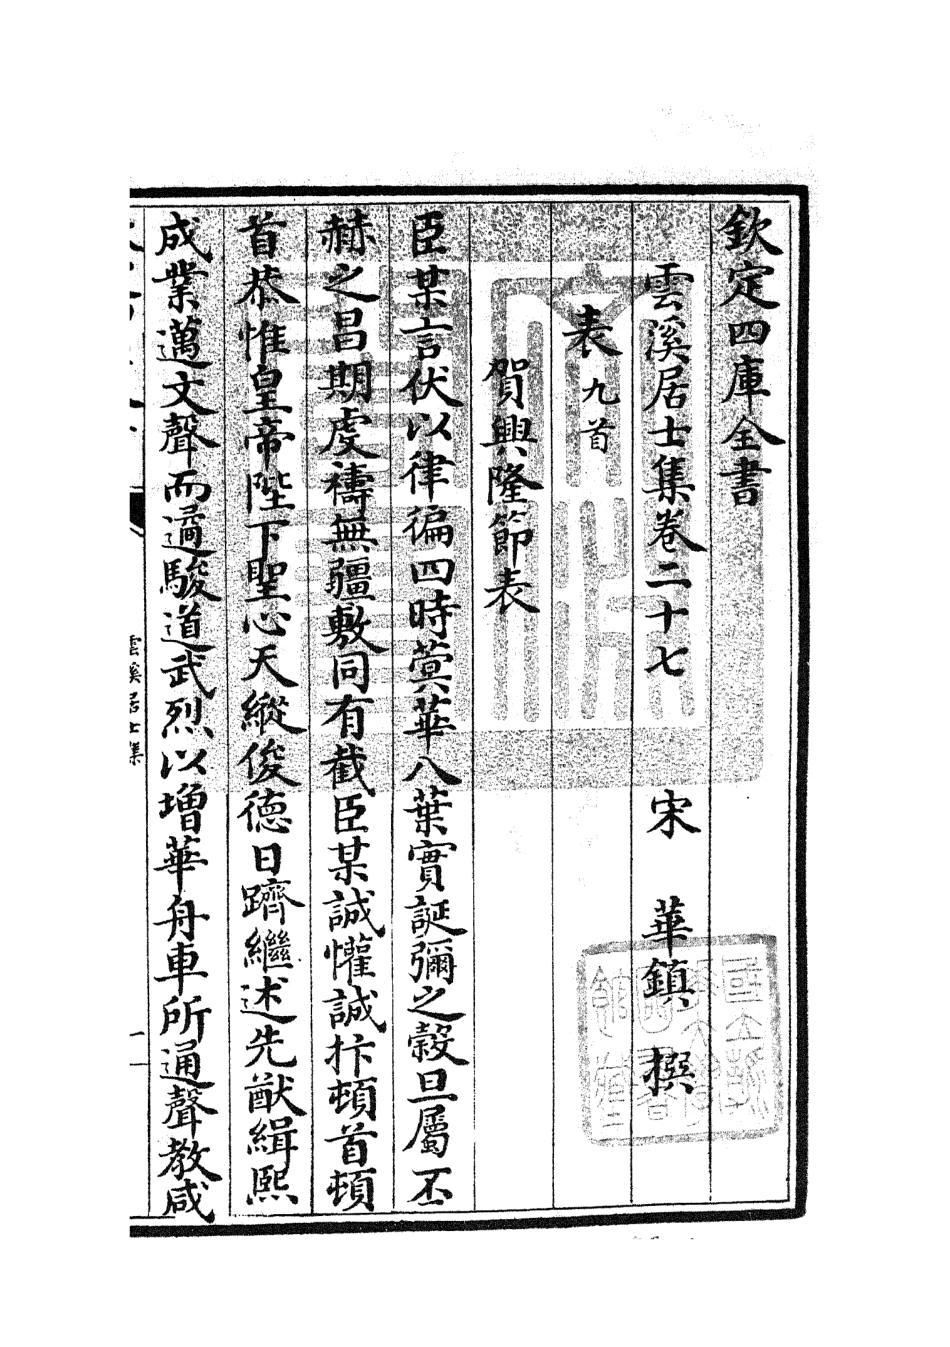 欽定四庫全書
雲溪居士集卷二十七　宋　華鎮　撰
表九首
賀興隆節表
臣某言伏以律徧四時蓂華八葉實誕彌之穀旦屬丕
赫之昌期虔禱無疆敷同有截臣某誠懽誠抃頓首頓
首恭惟皇帝陛下聖心天縱俊德日躋繼述先猷緝熙
成業邁文聲而遹駿道武烈以增華舟車所通聲教咸
雲溪居士集
一